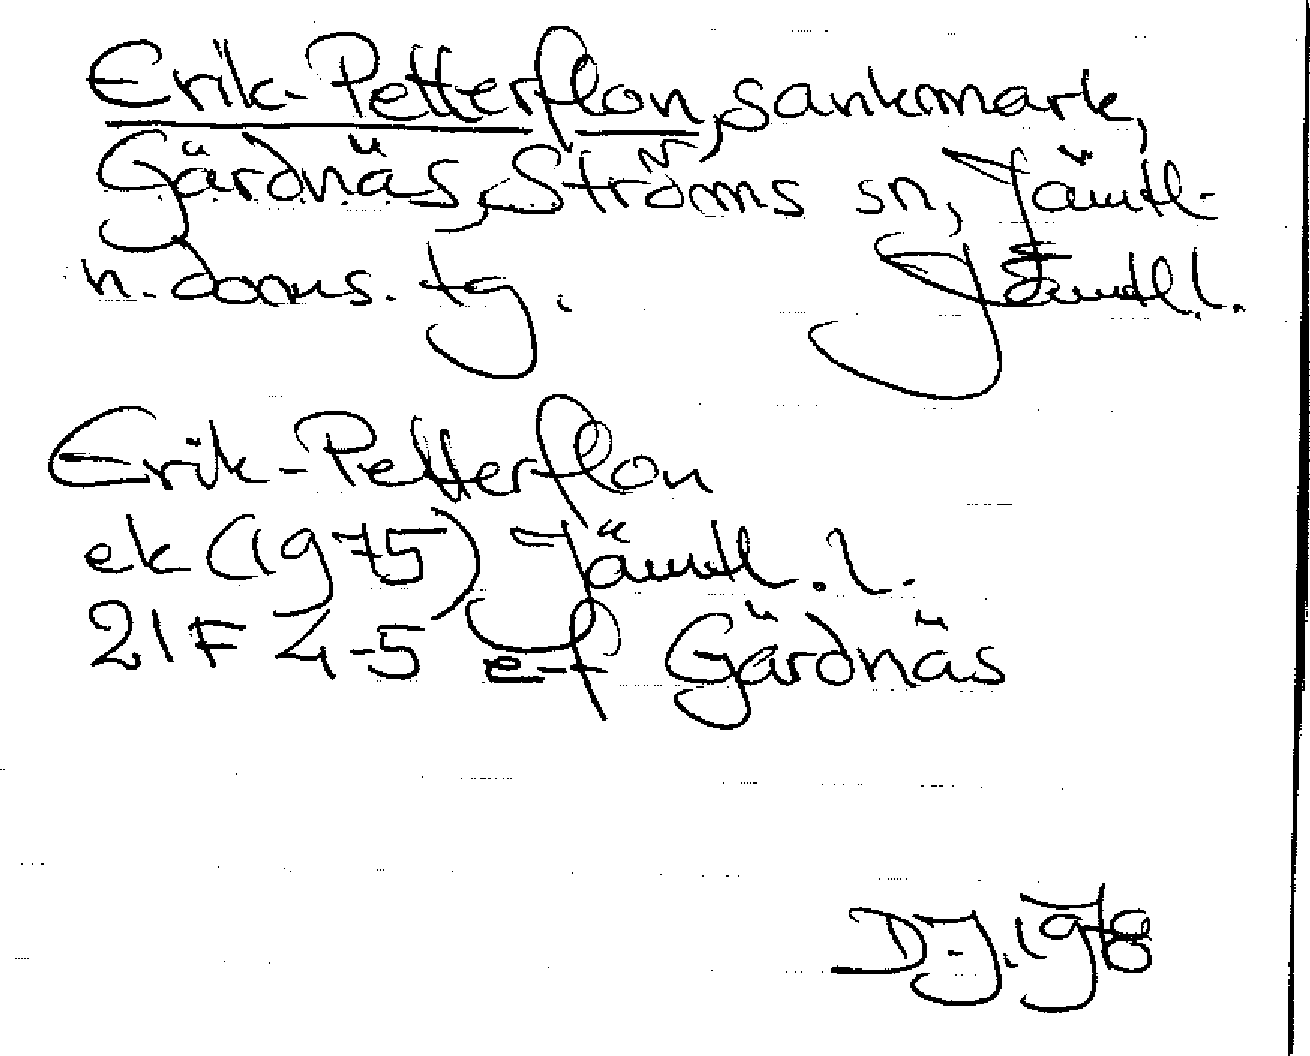 Erik-Petterflon, sankmark,
Gärdnäs, Ströms sn, Jämtl.
n. doms. tg. Jämtl.l.
Erik-Petterflon
ek (1975) Jämtl.l.
21F 4-5 e-f Gärdnäs
D.J. 1978